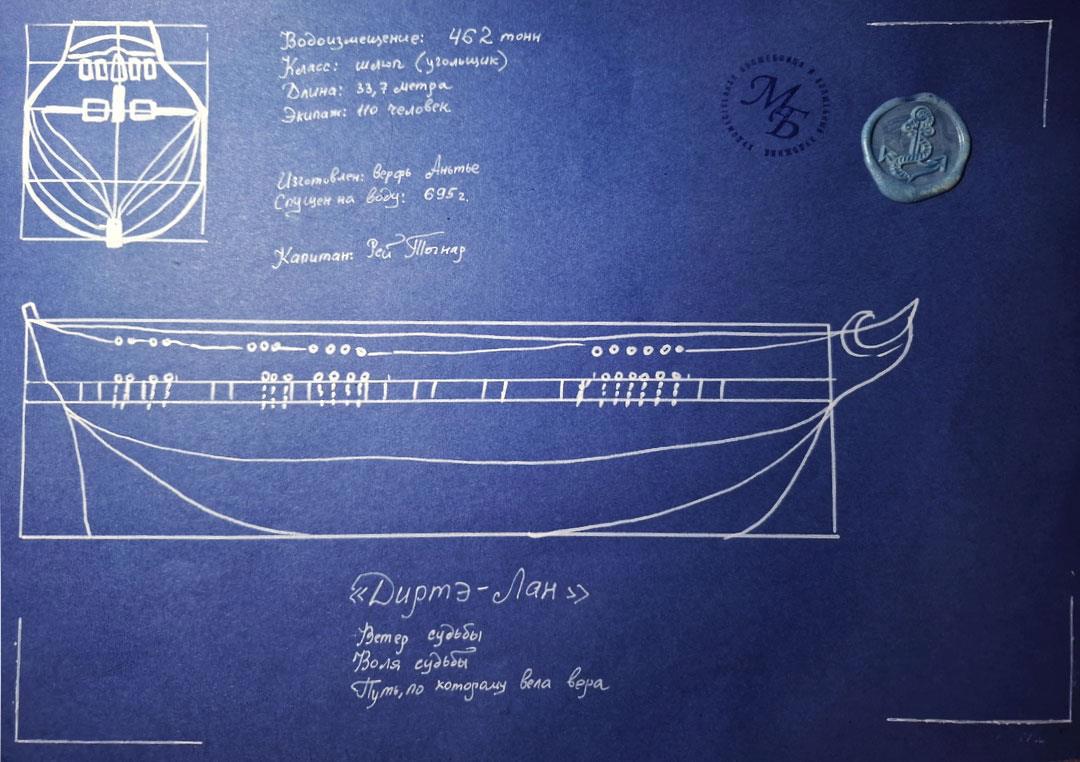 Водоизмещение: 462 тонн
Класс: шлюп (угольщик)
Длина: 33,7 метра
Экипаж: 110 человек
Изготовлен: верфь Аньтье
Спущен на воду: 695 г.
Капитан: Рей Тогнар
МБ
«Диртэ-Лан»
Ветер судьбы
Воля судьбы
Путь, по которому вела вера